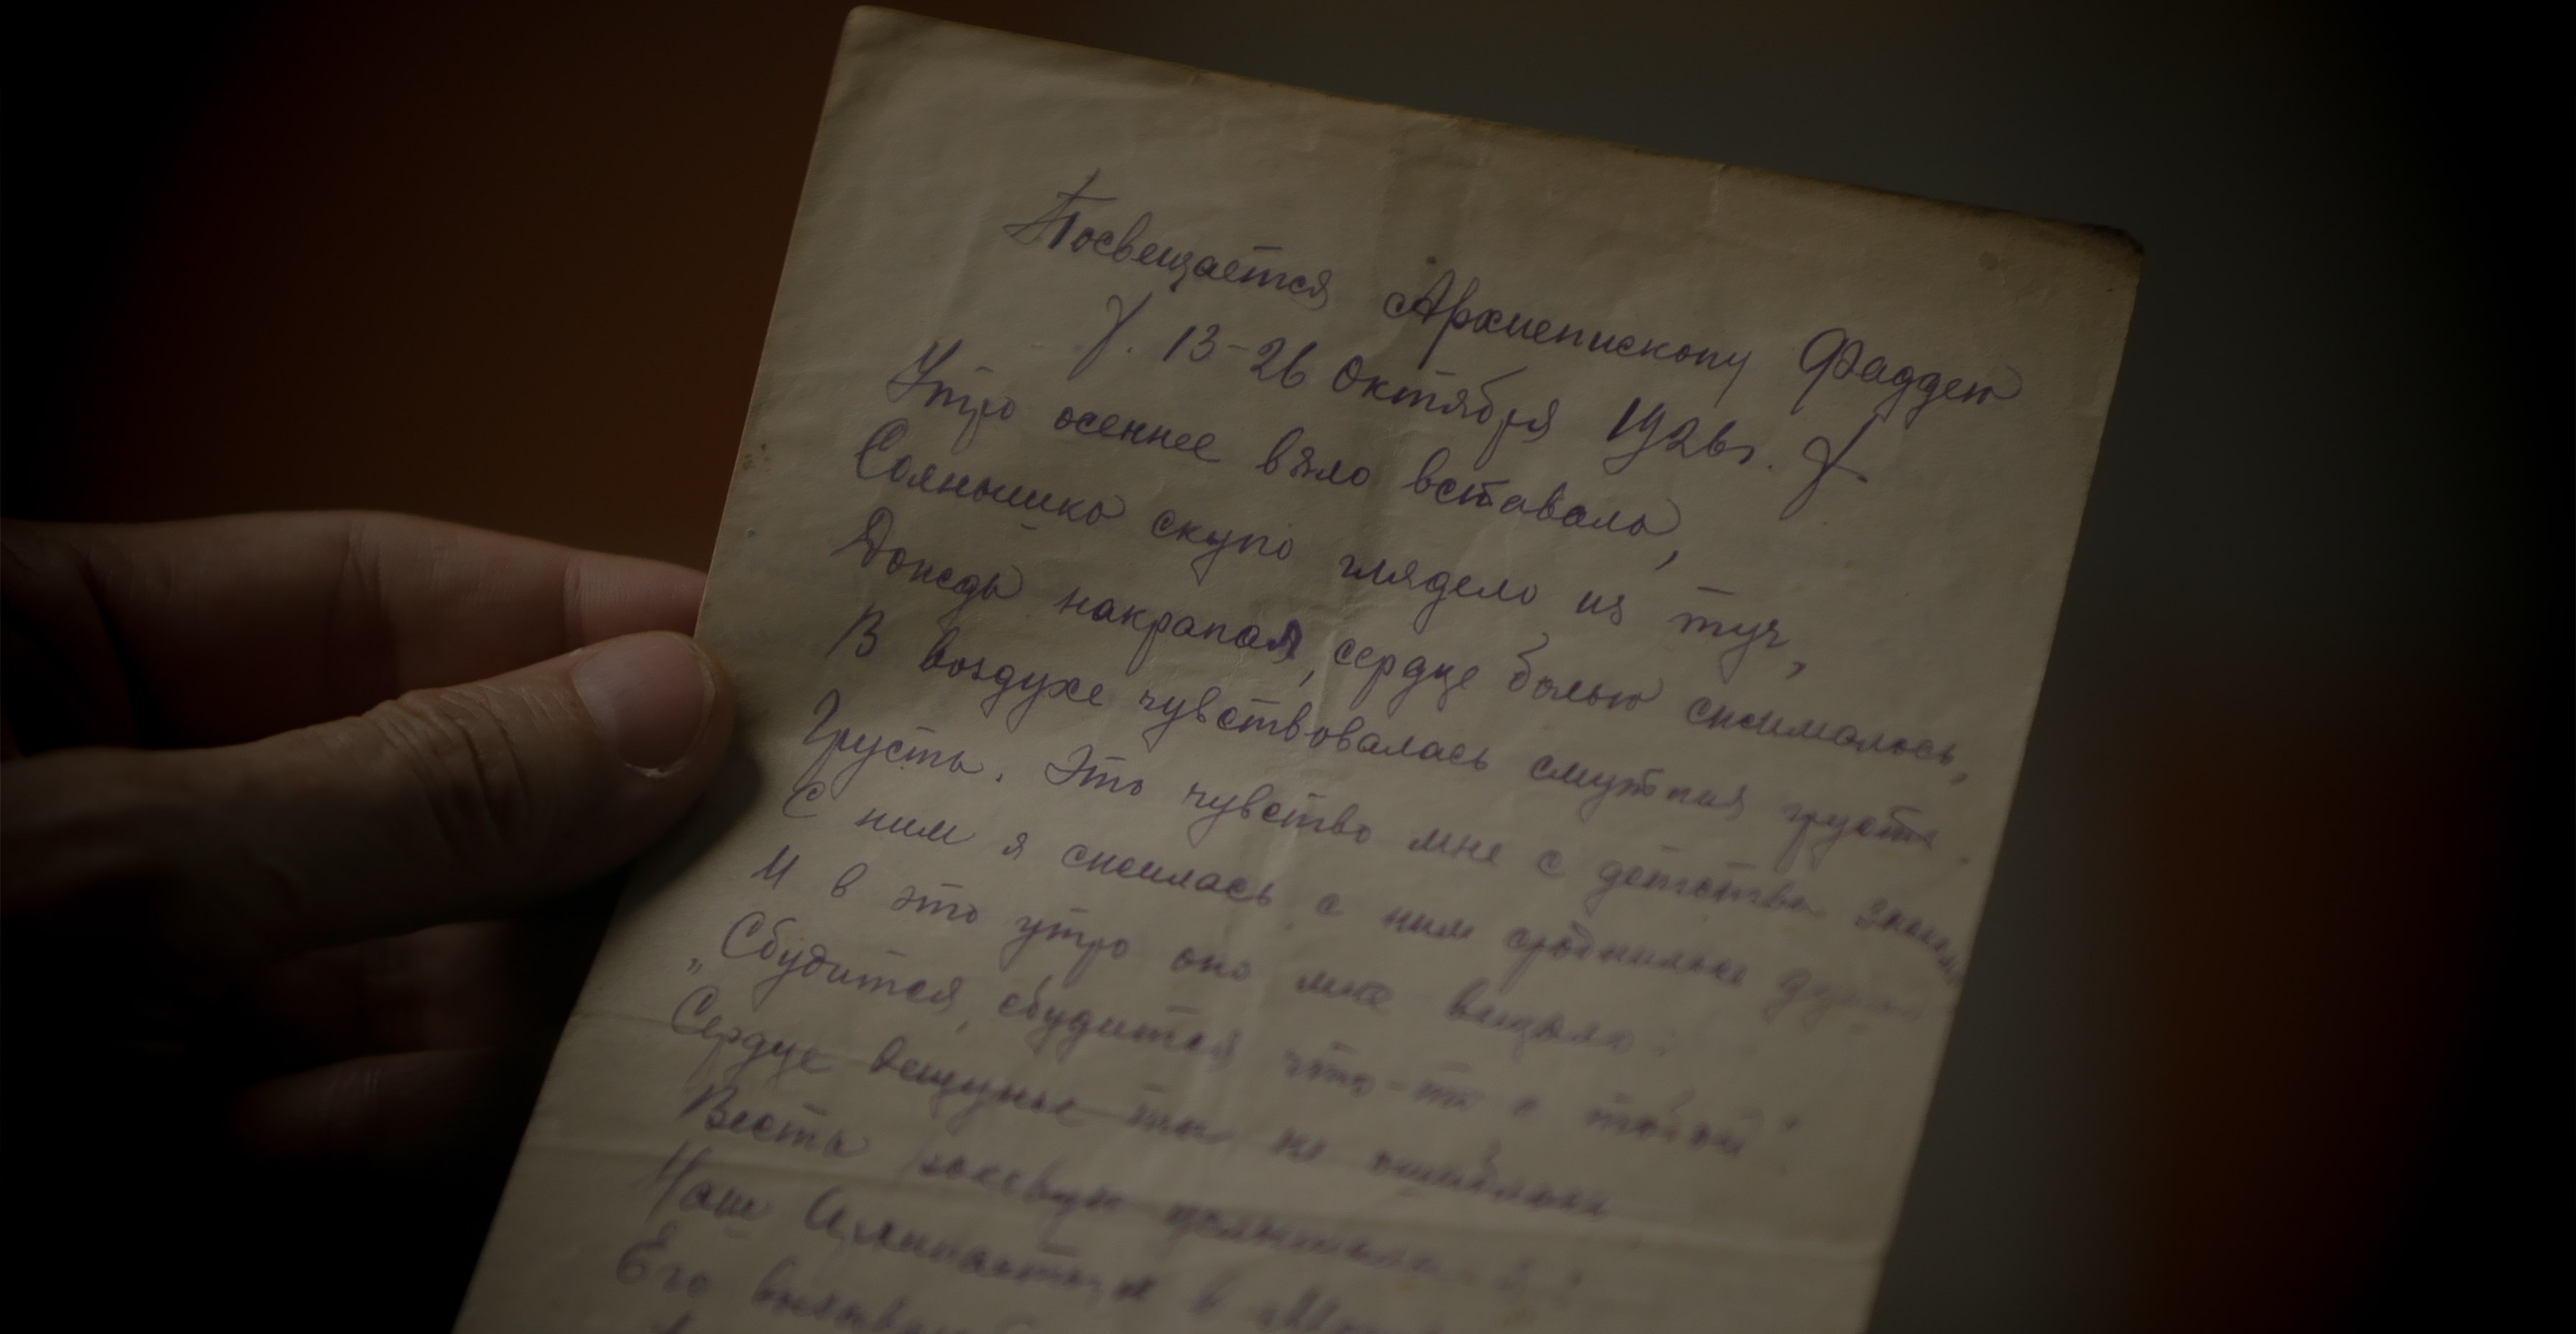 Посвещается Архиепископу Фаддею
13-26 Октября 1926г.
Утро осеннее вяло вставало,
Солнышко скупо глядело из туч,
Дождь накрапал, сердце болью сжималось,
В воздухе чувствовалась смутная грусть.
Грусть. Это чувство мне с детства
С ним я сжилась с ним сроднилась
И в это утро оно мне вещало:
„Сбудится, сбудится что-то с тобой"
Сердце вещунье ты не ошиблось
Весть роковую
Наш в
Его